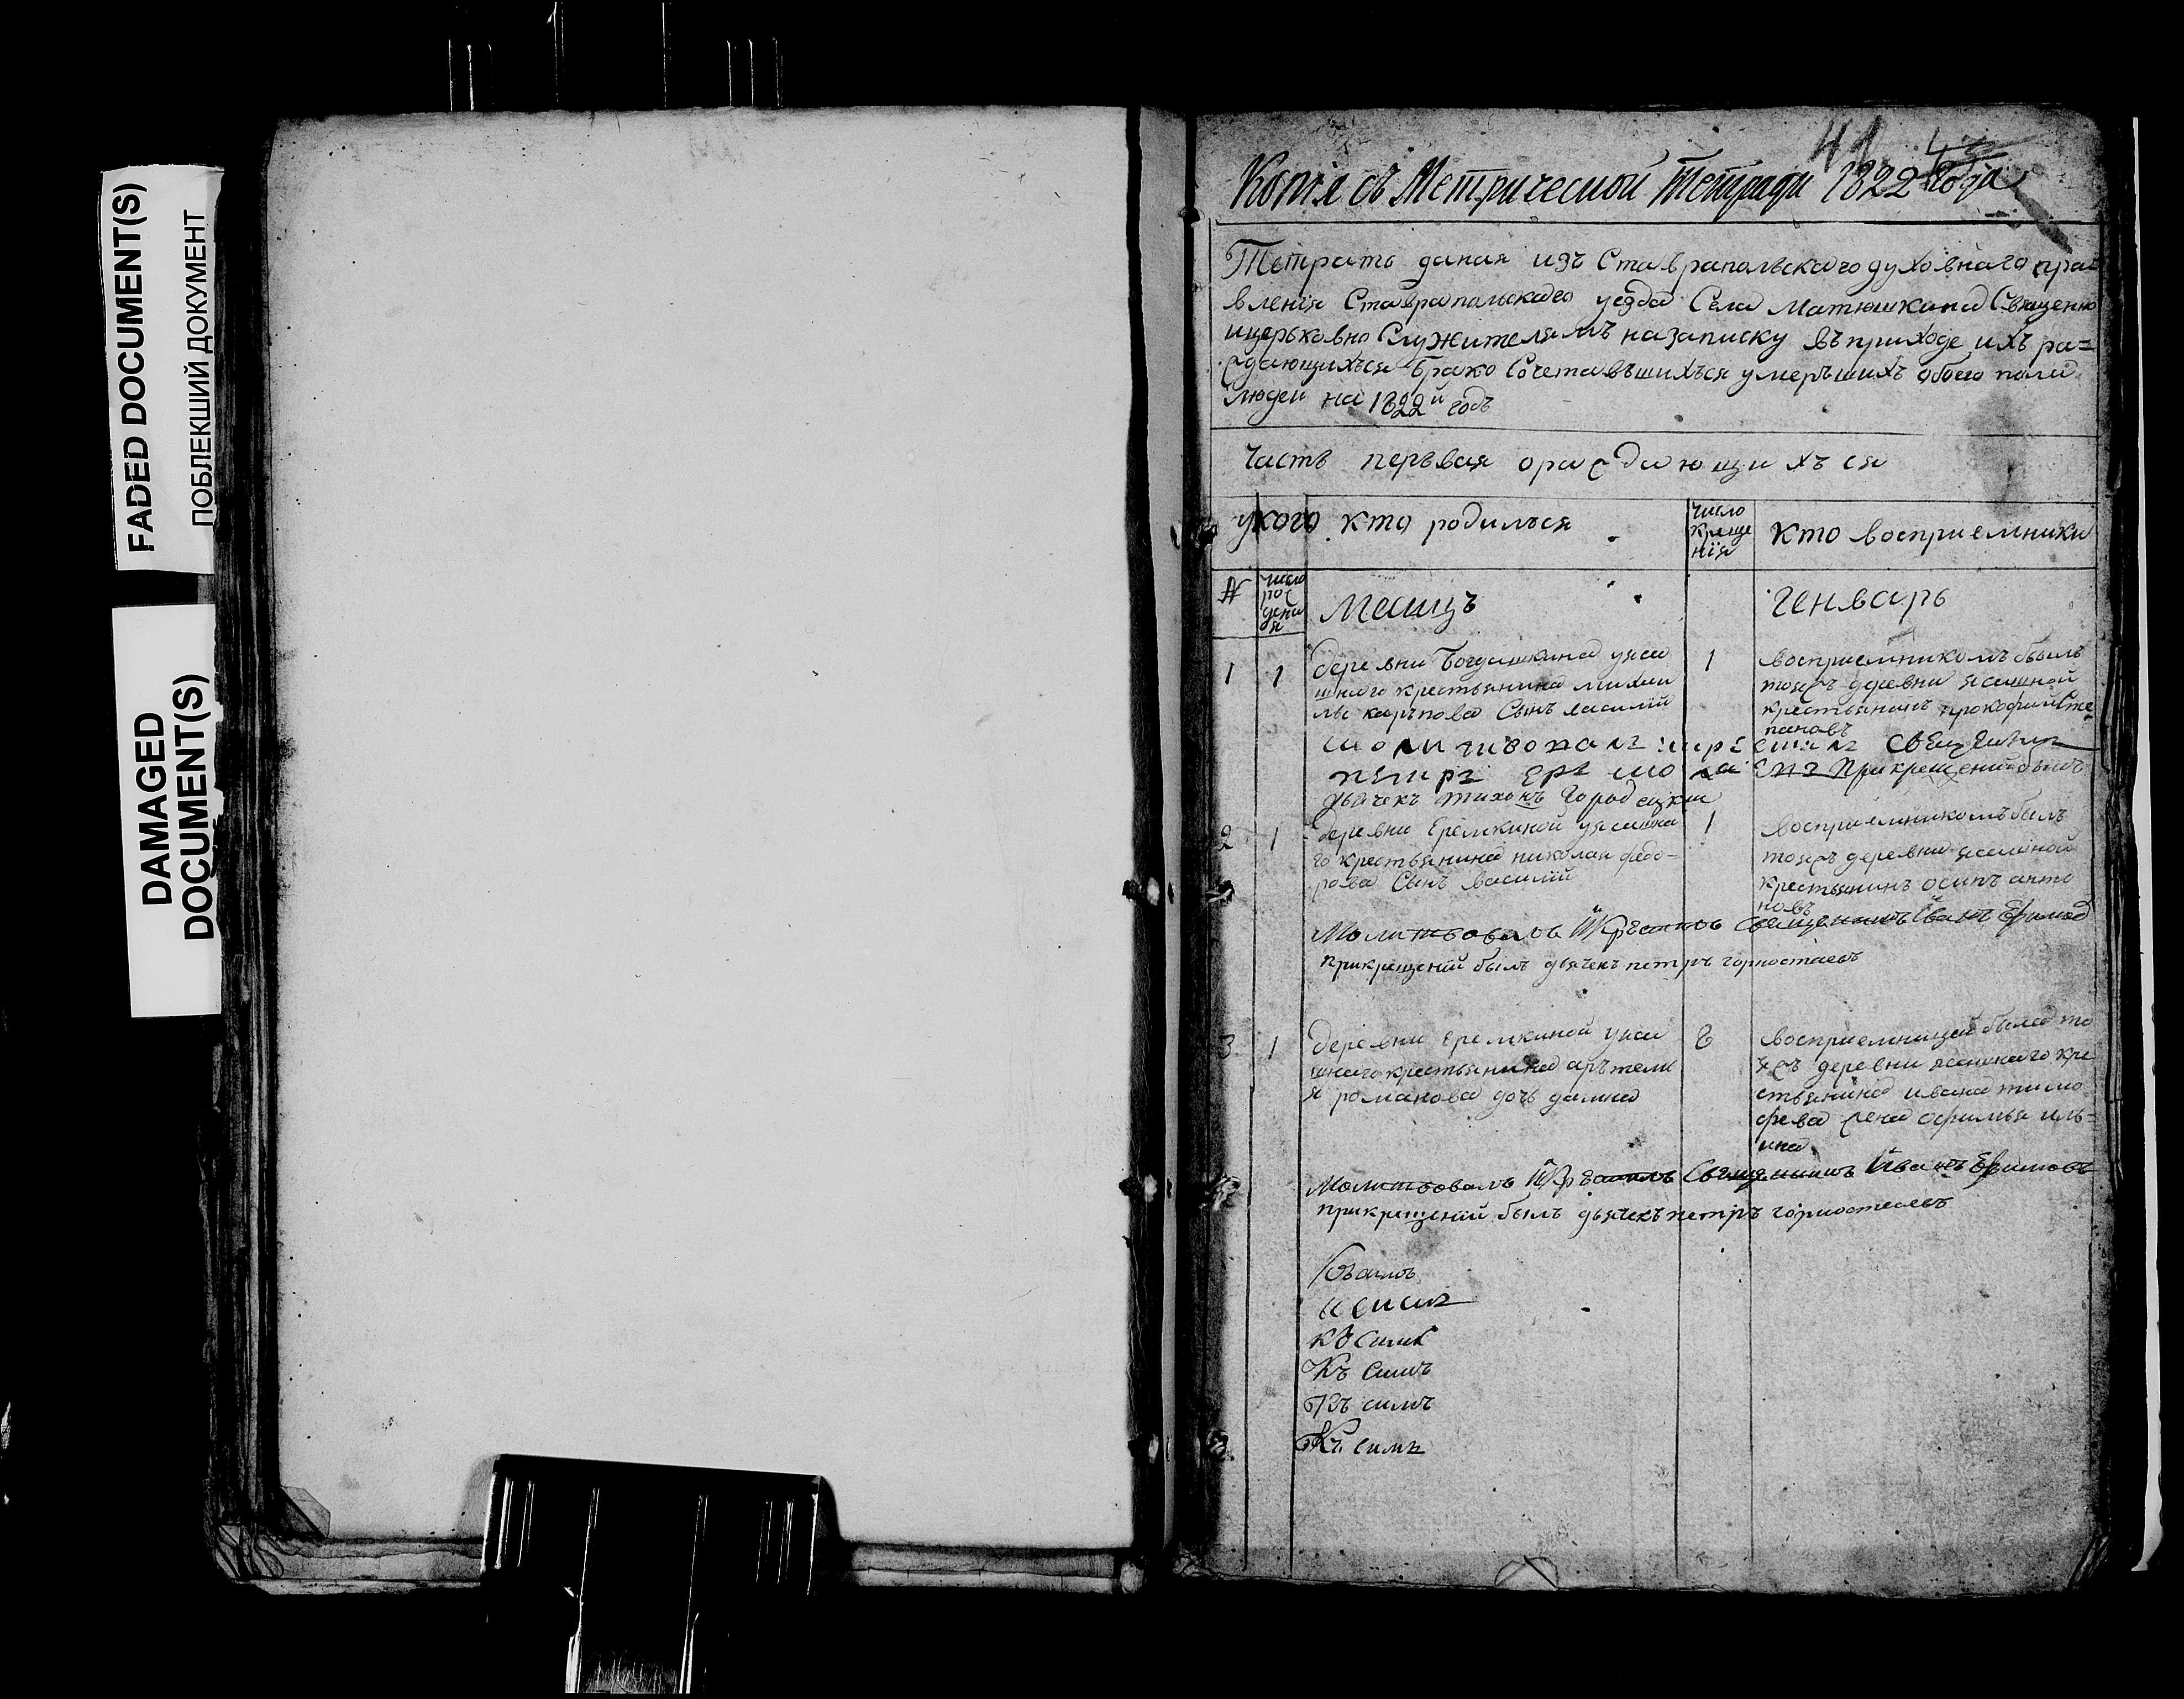 FADED DOCUMENT(S)
ПОБЛЕКШИЙ ДОКУМЕНТ
DAMAGED
DOCUMENT(S)
41
Копія съ Метрической тетради 1822 года
Тетрать даная изъ Ставрапольскаго духовнаго пра
вленія Ставрапольскаго уезда Села Матюшкина Священно
ицерьковно Служителямъ назаписку въприходе ихъ ра=
ждающихъся Брако Сочетавъшихъся умеръшихъ обоего пола
людей на 1822й годъ
Часть перьвая ораждающихъся
укого кто родилъся
число
креще
нїя
Кто восприемники
№
число
рож
дени
я
Месицъ
Генварь
1
1
деревни Богдашкина уяса
шнаго крестьянина михаи
лы карпова Сынъ василій
1
восприемникомъ былъ
тояжъ деревни ясашной
крестьянинъ прокофий Сте
пановъ
молитвовалъ икрестилъ священникъ
петръ ермолаевъ Прикрещении былъ
дьячекъ тихонъ Городецкии
2
1
деревни Еремкиной уясашна
го крестьянина николая федо-
рова Сынъ василій
1
восприемникомъ былъ
тояжъ деревни ясашной
крестьянинъ осипъ анто
новъ
Молитвовалъ Икрестилъ Священникъ Иванъ Ефимов
прикрещеніи былъ дьячекъ петръ горностаевъ
3
1
деревни еремкиной уяса
шнаго крестьянина артемь
я романова дочь домна
8
восприемницей была то
яжъ деревни ясашнаго кре
стьянина ивана тимо
феева жена офимья иль=
ина
Молитвовалъ Икрестилъ Священникъ Иванъ Ефимовъ
прикрещеніи былъ дьячекъ петръ горностаевъ
Къ симъ
Къ симъ
Къ симъ
Къ симъ